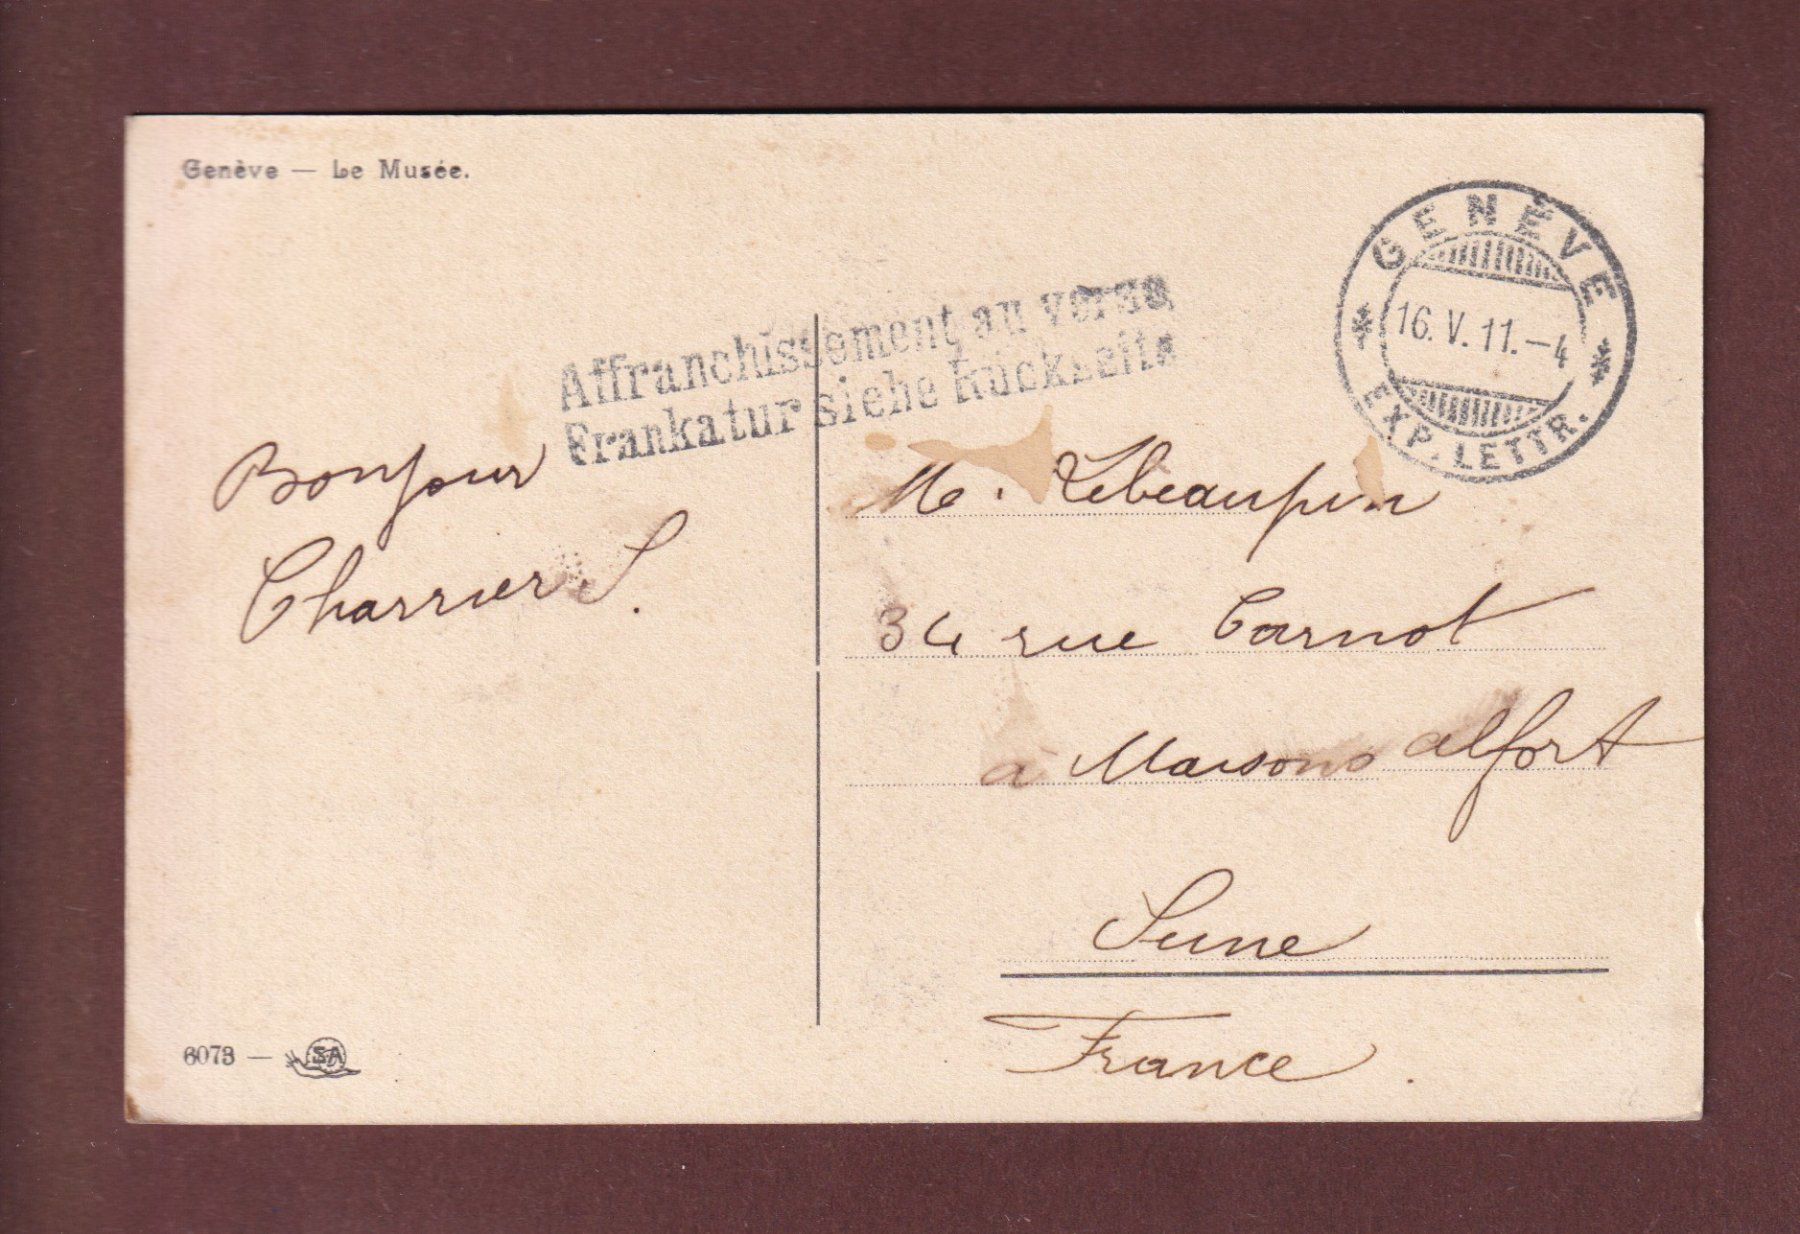 Genève — Le Musée.
GENÈVE
16. V. 11. — 4
EXP. LETTR.
Affranchissement au verso
Frankatur siehe Rückseite
Bonjour
Charrier S.
M. Lebeaupin
34 rue Carnot
à Maisons alfort
Seine
France.
6073 — SA